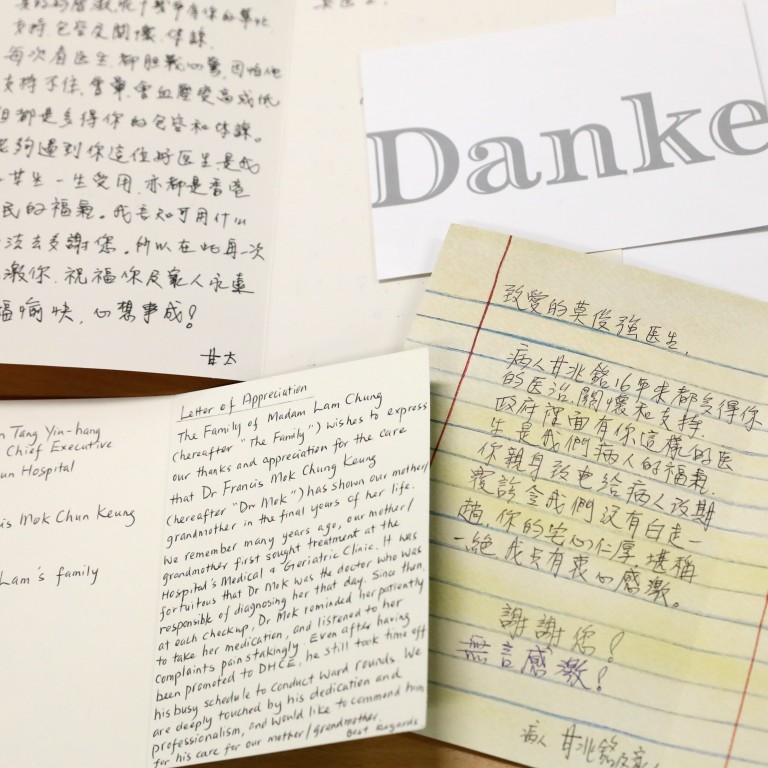 支持、包容及關懷、体諒
每次看医生都胆戰心驚,因怕他
支持不住,會暈,會血壓變高或低
但都是多得你的包容和体諒。
能夠遇到你這位好医生,是我
一生受用,亦都是香港
民的福氣。我善知可用什么
法去多謝您。所以在此再一次
激你,祝福你及家人永遠
福愉快,心想事成!
甘太
Danke
n Tang Yin-hang
Chief Executive
un Hospital
is Mok Chun Keung
Lam's family
Letter of Appreciation
The Family of Madam Lam Chung
(hereafter "The Family") wishes to express
our thanks and appreciation for the care
that Dr Francis Mok Chung Keung
(hereafter "Dr Mok") has shown our mother/
grandmother in the final years of her life.
We remember many years ago, our mother/
grandmother first sought treatment at the
Hospital's Medical & Geriatric Clinic. It was
fortuitous that Dr Mok was the doctor who was
responsible of diagnosing her that day. Since then,
at each checkup, Dr Mok reminded her patiently
to take her medication, and listened to her
complaints painstakingly. Even after having
been promoted to DHCE, he still took time off
his busy schedule to conduct ward rounds. We
are deeply touched by his dedication and
professionalism, and would like to commend him
for his care for our mother/grandmother.
Best Regards
致愛的莫俊強医生,
病人甘兆銘16年來都多得你
的医治,關懷和支持.
政府裡面有你這樣的医
生是我們病人的福氣.
你親自致电給病人改期
覆診令我們沒有白走一
趟,你的宅心仁厚堪稱
一絶,我只有衷心感激。
謝謝您!
無言感激!
病人 甘兆銘